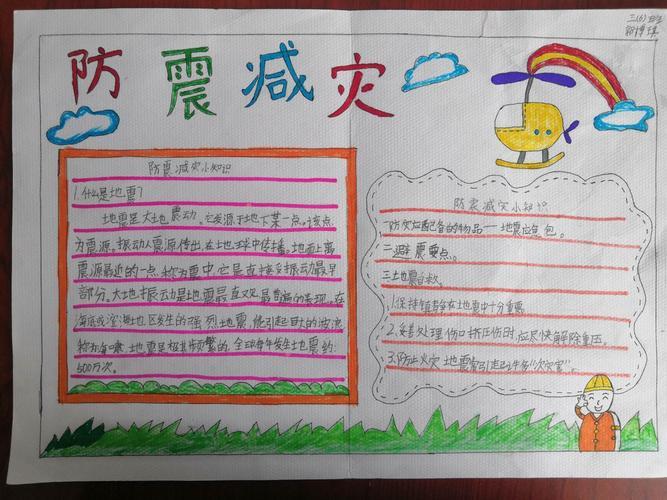 三(6)班
防震减灾
防震减灾小知识
1.什么是地震？
地震是大地震动。它发源于地下某一点。该点
为震源。振动从震源传出，在地球中传播。地面上离
震源最近的一点，称为震中，它是直接受振动最早
部分。大地振动是地震最直观、最普遍的表现。在
海底或滨海地区发生的强烈地震，能引起巨大的波浪
称为海啸。地震是极其频繁的，全球每年发生地震约
500万次。
防震减灾小知识
一防灾应配备的物品——地震应急包。
二避震要点。
三地震自救。
1.保持镇静在地震中十分重要。
2.妥善处理伤口挤压伤时，应尽快解除重压。
3.防止火灾 地震常引起许多“次灾害”。